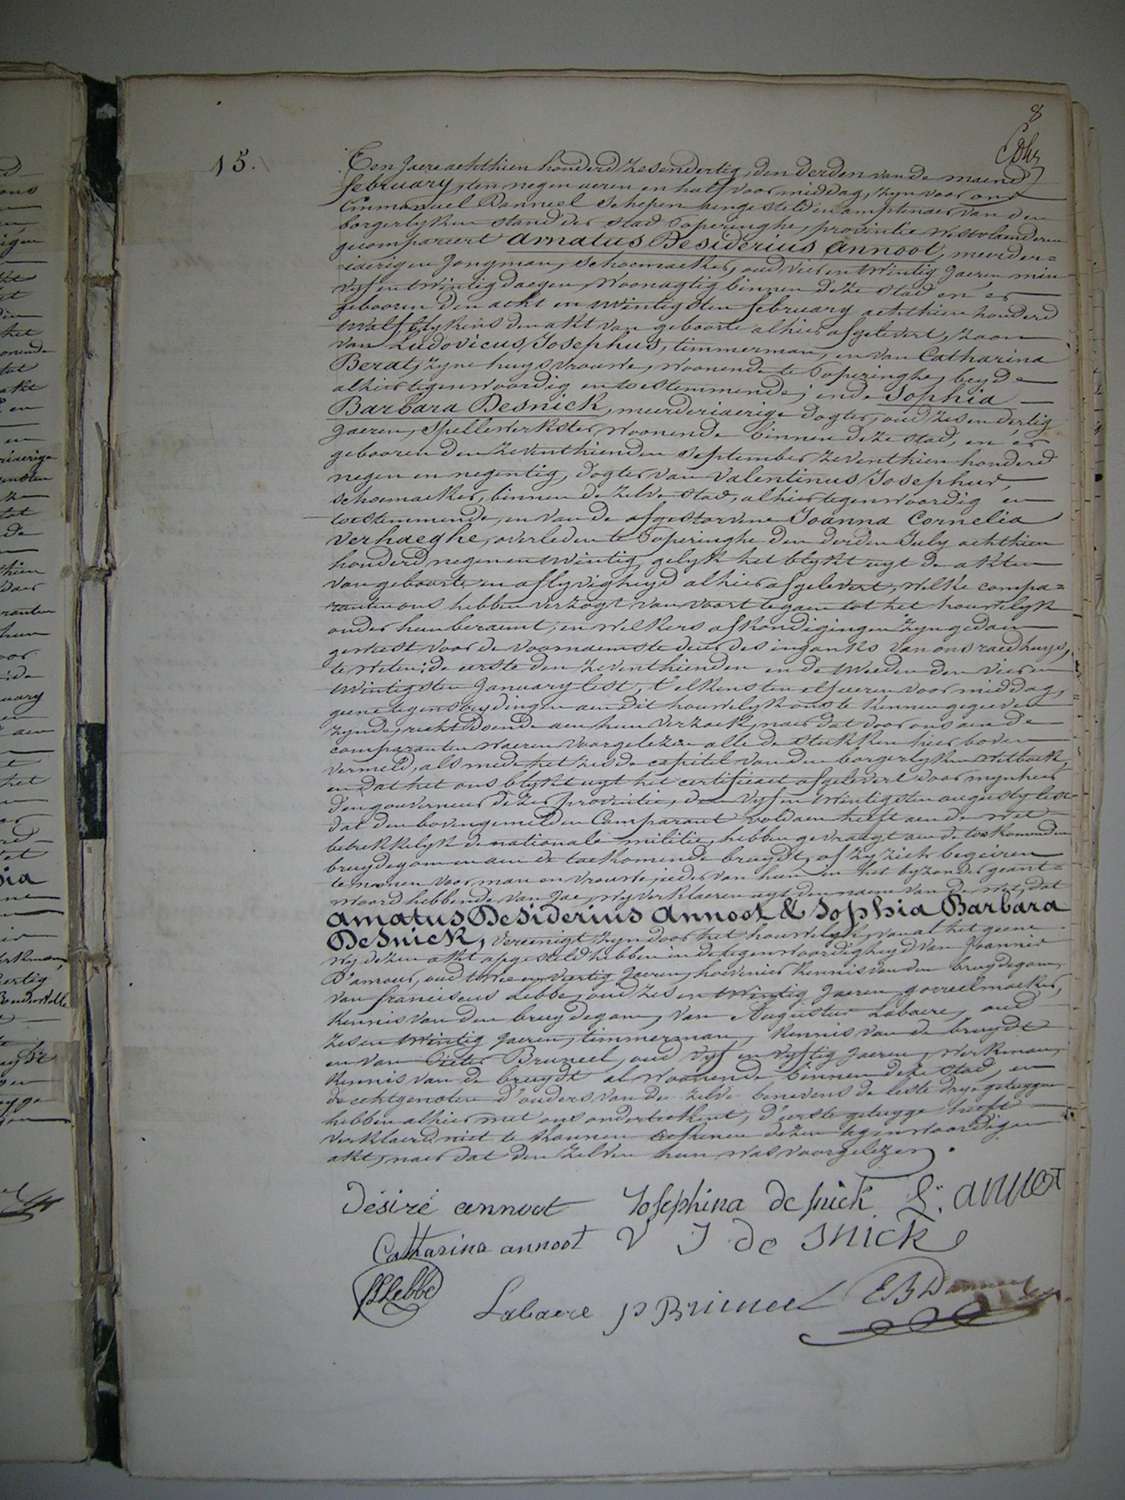 8
15.
Een Jaere achthien honderd zesendertig, den derden van de maend
february, ten negen ueren en half voormiddag, zyn voor ons
Emmanuel Danneel Schepen aengesteld en amptenaer van den
borgerlyken stand der stad Poperinghe, provintie Westvlaenderen
gecompareert Amatus Desiderius Annoot, meerder-
jaerigen Jongman, schoemaeker, oud vier en twintig Jaeren, min-
vyf en twintig daegen, woonagtig binnen deze stad en er
gebooren den acht en twintigsten february achthien honderd
twalf blykens den akt van geboorte alhier afgelevert, zoon
van Ludovicus Josephus, timmerman, en van Catharina
Berat, zyne huysvrouwe, woonende te Poperinghe, beyde
alhier tegenwoordig en toestemmende; ende Sophia
Barbara Desnick, meerderjaerige dogter, oud zes en dertig
Jaeren, spellewerkster, woonende binnen deze stad, en er
gebooren den zeventhienden september zeventhien honderd
negen en negentig, dogter van Valentinus Josephus,
schoemaeker, binnen de zelve stad, alhier tegenwoordig en
toestemmende, en van de afgestorvene Joanna Cornelia
Verhaeghe, overleden te Poperinghe den derden July achthien
honderd negen en twintig, gelyk het blykt uyt de akten
van geboorte en aflyvigheyd alhier afgelevert, welke compa-
ranten ons hebben verzogt van voort te gaen tot het houwelyk
onder hun beraemt, en welkers afkondigingen zyn gedaen
geweest voor de voornaemste deur des ingangs van ons raedhuys,
te weten: de eerste den zeventhienden en de tweede den vier en
twintigsten January lest, t'elkens ten elf ueren voor middag,
geene tegenstrydingen aen dit houwelyk ons te kennen gegeven
zynde, recht doende aen hun verzoek, naer dat door ons aen de
comparanten waeren voorgelezen alle de stukken hier boven
vermeld, als mede het zesde capitel van den borgerlyken wetboek,
en dat het ons blykt uyt het certificaet afgelevert door mynheer
den gouverneur dezer provintie, den vyf en twintigsten augusty lest
dat den bovengemelden Comparant voldaen heeft aen de wet
betrekkelyk de nationale militie, hebben gevraegt aen den toekomenden
bruydegom en aen de toekomende bruydt, of zy zich begeeren
te nemen voor man en vrouwe; jeder van hun en het byzonder geant-
woord hebbende van Jae, wy verklaeren uyt den naeme van de wet, dat
Amatus Desiderius Annoot & Sophia Barbara
Desnick, vereenigt zyn door het houwelyk, van al het geene
wy dezen akt opgesteld hebben in de tegenwoordigheyd van Joannes
D'amour, oud twee en veertig Jaeren, hovenier kennis van den bruydegom,
van franciscus Lebbe, oud zes en twintig Jaeren, gorreelmaeker,
kennis van den bruydegom, van Augustus Labaere, oud
zes en twintig Jaeren, timmerman, kennis van de bruydt
en van Pieter Bruneel, oud vyf en vyftig Jaeren, werkman,
kennis van de bruydt al woonende binnen deze stad, en
de echtgenoten d'ouders van de zelve benevens de leste dry getuygen
hebben alhier met ons onderteekent, d'eerste getuyge heeft
verklaerd niet te konnen teekenen dezen tegenwoordigen
akt, naer dat den zelven hun was voorgelezen.
Désiré annoot Josephina de snick L. annoot
Catharina annoot V J de Snick
Lebbe
Labaere p Bruneel E B Danneel